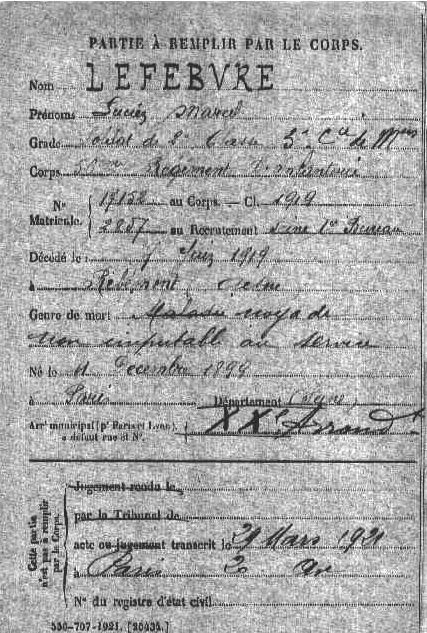 PARTIE À REMPLIR PAR LE CORPS.
Nom LEFEBVRE
Prénoms Lucien Marcel
Grade Soldat de 2e Classe 3e Cie de Mses
Corps Régiment d'Infanterie
N° Matricule. { 17152 au Corps. — Cl. 1919
2257 au Recrutement Seine 1er Bureau
Décédé le 7 Juin 1919
à Ribémont Aisne
Genre de mort Maladie noyade
non imputable au service
Né le 11 Décembre 1899
à Paris Département (Seine)
Arrt municipal (pr Paris et Lyon), à défaut rue et N°. } XXe Arrondt
Cette partie n'est pas à remplir par le Corps.
Jugement rendu le
par le Tribunal de
acte ou jugement transcrit le 29 Mars 1921
à Paris 20 Ar
N° du registre d'état civil
550-707-1921. [26434.]